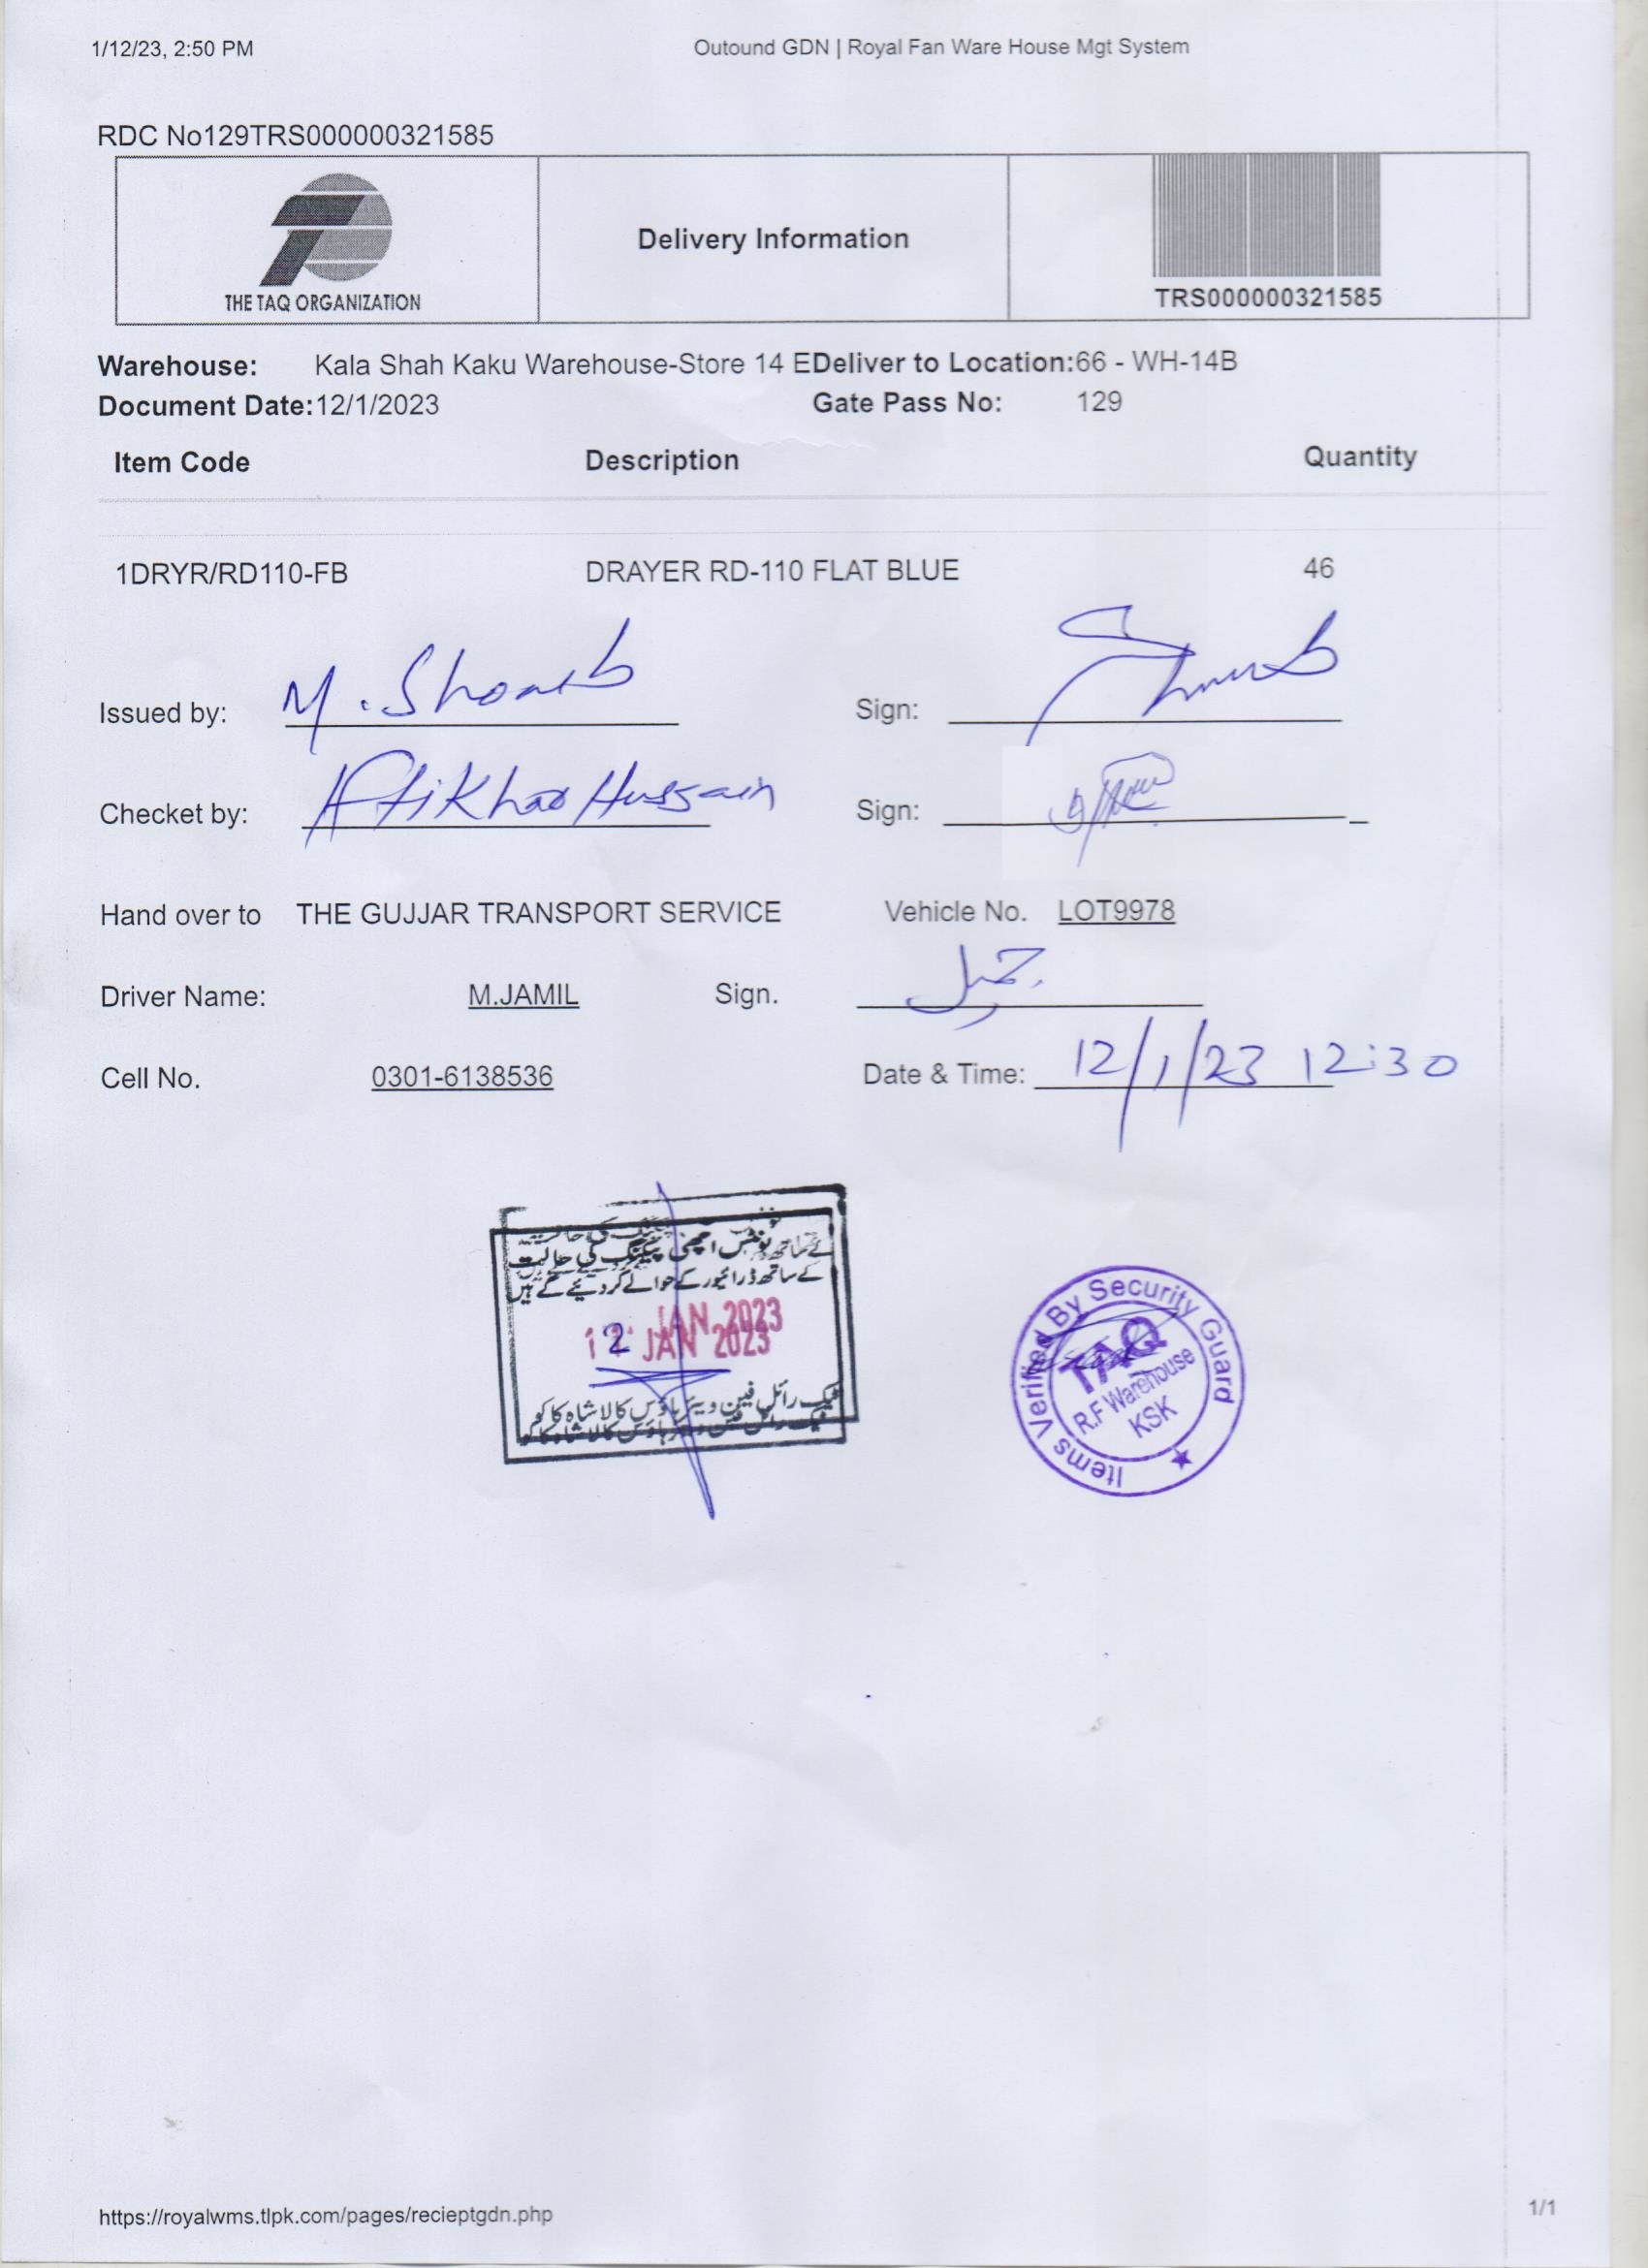 1/12/23, 2:50 PM Outound GDN | Royal Fan Ware House Mgt System
RDC No129TRS000000321585
THE TAQ ORGANIZATION
Delivery Information
TRS000000321585
Warehouse: Kala Shah Kaku Warehouse-Store 14 EDeliver to Location:66 - WH-14B
Document Date:12/1/2023 Gate Pass No: 129
Item Code Description Quantity
1DRYR/RD110-FB DRAYER RD-110 FLAT BLUE 46
Issued by: M. Shoaib Sign:
Checket by: Iftikhar Hussain Sign:
Hand over to THE GUJJAR TRANSPORT SERVICE Vehicle No. LOT9978
Driver Name: M.JAMIL Sign. جمیل
Cell No. 0301-6138536 Date & Time: 12/1/23 12:30
یونٹس اچھی پیکنگ کی حالت
کے ساتھ ڈرائیور کے حوالے کر دیئے گئے ہیں
12 JAN 2023
ٹیک رائل فین ویئر ہاؤس کالا شاہ کاکو
Items Verified By Security Guard
TAQ
R.F Warehouse
KSK
https://royalwms.tlpk.com/pages/recieptgdn.php 1/1